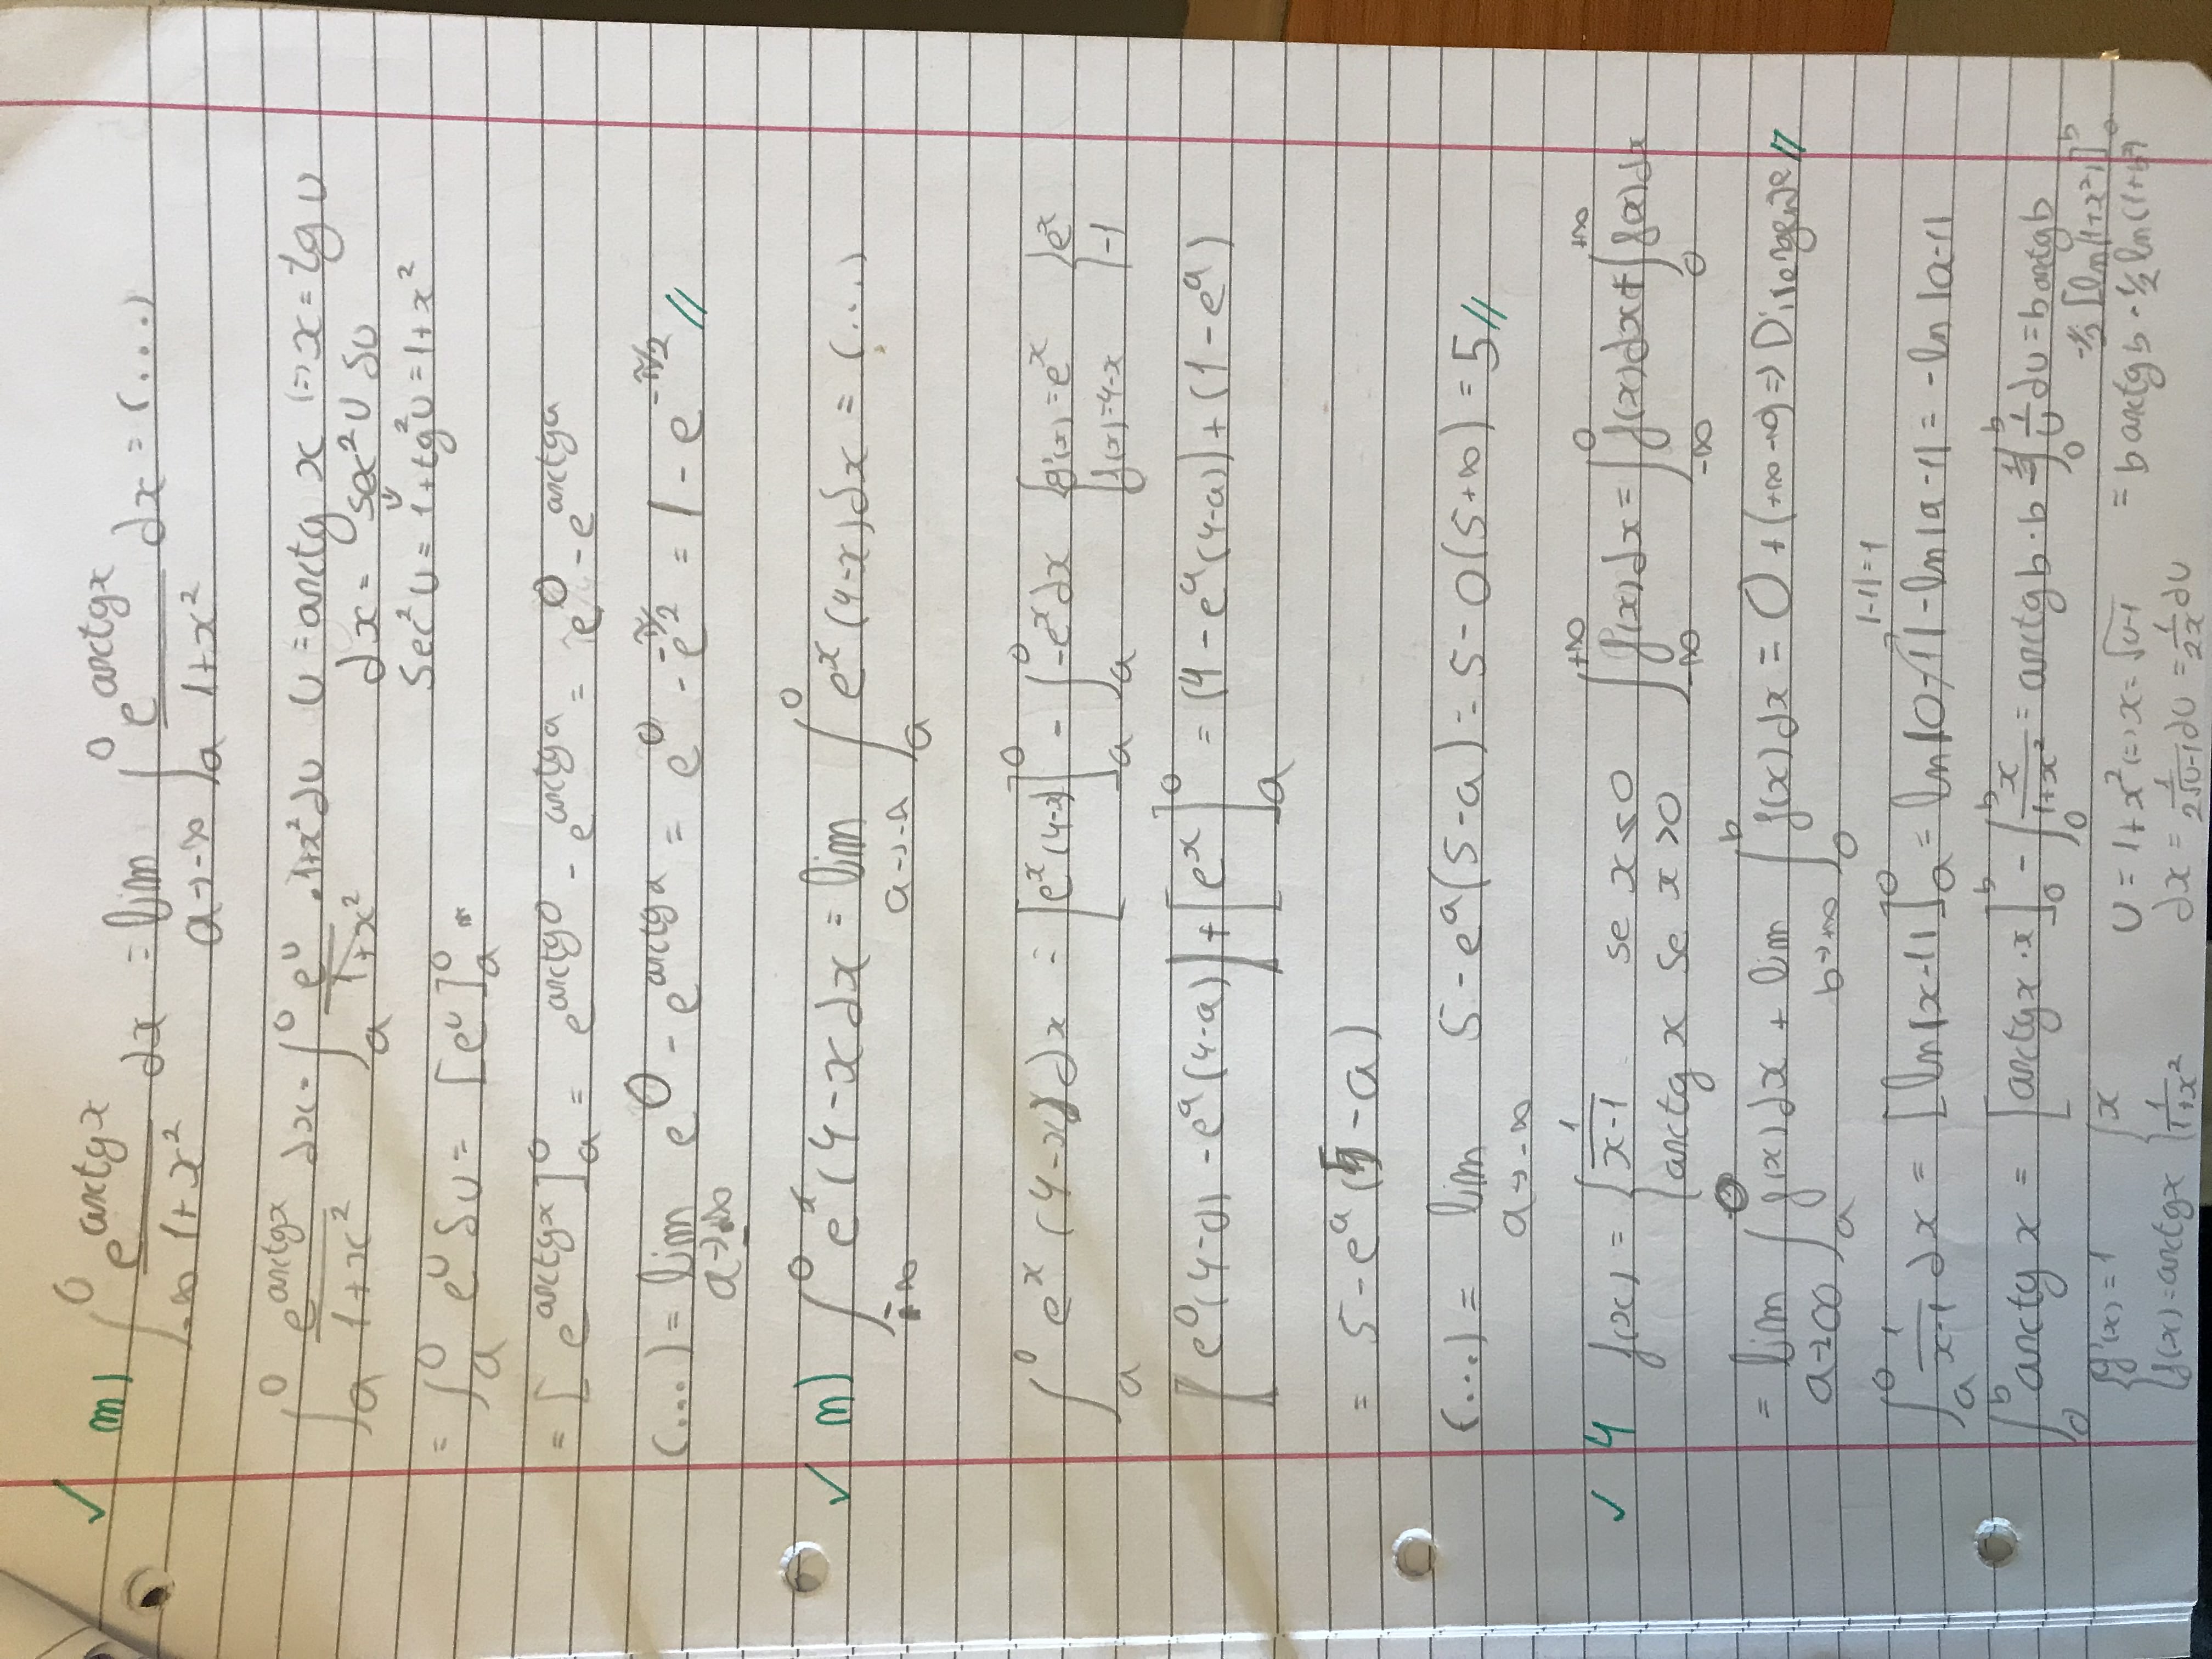 ✓ m) ∫_{-∞}^{0} e^{arctg x}/(1+x²) dx = lim_{a→-∞} ∫_a^0 e^{arctg x}/(1+x²) dx = (...)
∫_a^0 e^{arctg x}/(1+x²) dx = ∫_a^0 e^u/(1+x²) · 1+x² du   u = arctg x (=) x = tg u
dx = sec² u du
sec² u = 1 + tg² u = 1 + x²
= ∫_a^0 e^u du = [e^u]_a^0 =
= [e^{arctg x}]_a^0 = e^{arctg 0} - e^{arctg a} = e^0 - e^{arctg a}
(...) = lim_{a→-∞} e^0 - e^{arctg a} = e^0 - e^{-π/2} = 1 - e^{-π/2} //
✓ n) ∫_{-∞}^0 e^x (4-x dx = lim_{a→-∞} ∫_a^0 e^x (4-x) dx = (...)
∫_a^0 e^x (4-x) dx = [e^x (4-x)]_a^0 - ∫_a^0 -e^x dx   { g'(x) = e^x   { e^x
f(x) = 4-x   -1
[e^0 (4-0) - e^a (4-a)] + [e^x]_a^0 = (4 - e^a (4-a)) + (1 - e^a)
= 5 - e^a (5 - a)
(...) = lim_{a→-∞} 5 - e^a (5-a) = 5 - 0(5+∞) = 5 //
✓ 4 f(x) = { 1/(x-1) se x ≤ 0   ∫_{-∞}^{+∞} f(x) dx = ∫_{-∞}^0 f(x) dx + ∫_0^{+∞} f(x) dx
arctg x se x > 0
= lim_{a→∞} ∫_a^0 f(x) dx + lim_{b→+∞} ∫_0^b f(x) dx = 0 + (+∞ -∞) => Divergente //
|-1| = 1
∫_a^0 1/(x-1) dx = [ln|x-1|]_a^0 = ln|0-1| - ln|a-1| = -ln|a-1|
∫_0^b arctg x = [arctg x · x]_0^b - ∫_0^b x/(1+x²) = arctg b · b - 1/2 ∫_0^b 1/u du = b arctg b
-1/2 [ln|1+x²|]_0^b
{ g'(x) = 1   { x   u = 1+x² (=) x = √(u-1)   = b arctg b - 1/2 ln(1+b²)
f(x) = arctg x   1/(1+x²)   dx = 1/(2√(u-1)) du = 1/(2x) du